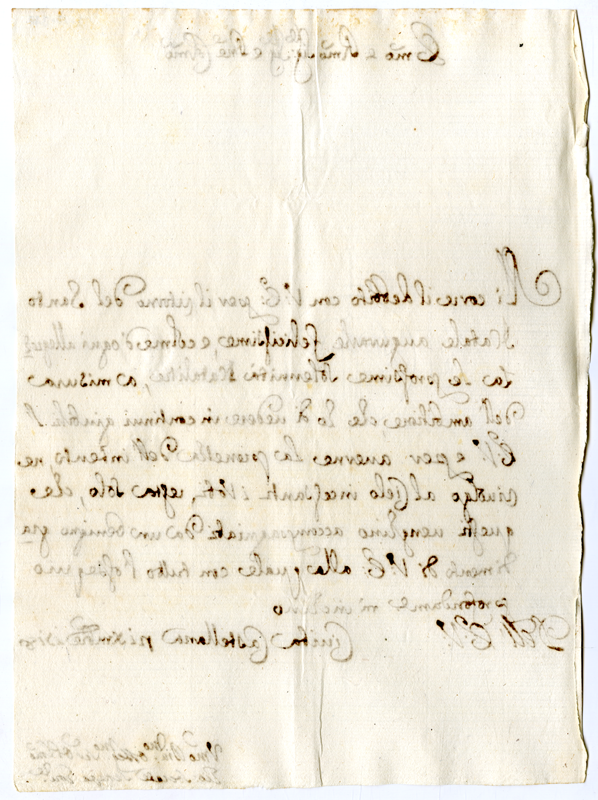 Emo e Rmo Sig.re e Pne Colmo
Mi corre il debbito con V.E. per il ritorno del Santo
Natale augurarle felicissime, e colme d'ogni allegrez
za le prossime solennità Natalitie, a misura
dell'ambitione, che hò di vedere in continui giubili l'
E.V. e per averne la pienezza dell'intento, ne
rivolgo al Cielo incessanti i voti, resta solo, che
questi venghino accompagniati da un benigno gra
dimento di V.E. alla quale con tutto l'ossequio
profondame m'inclino
Dell' E.V.
Civita Castellana